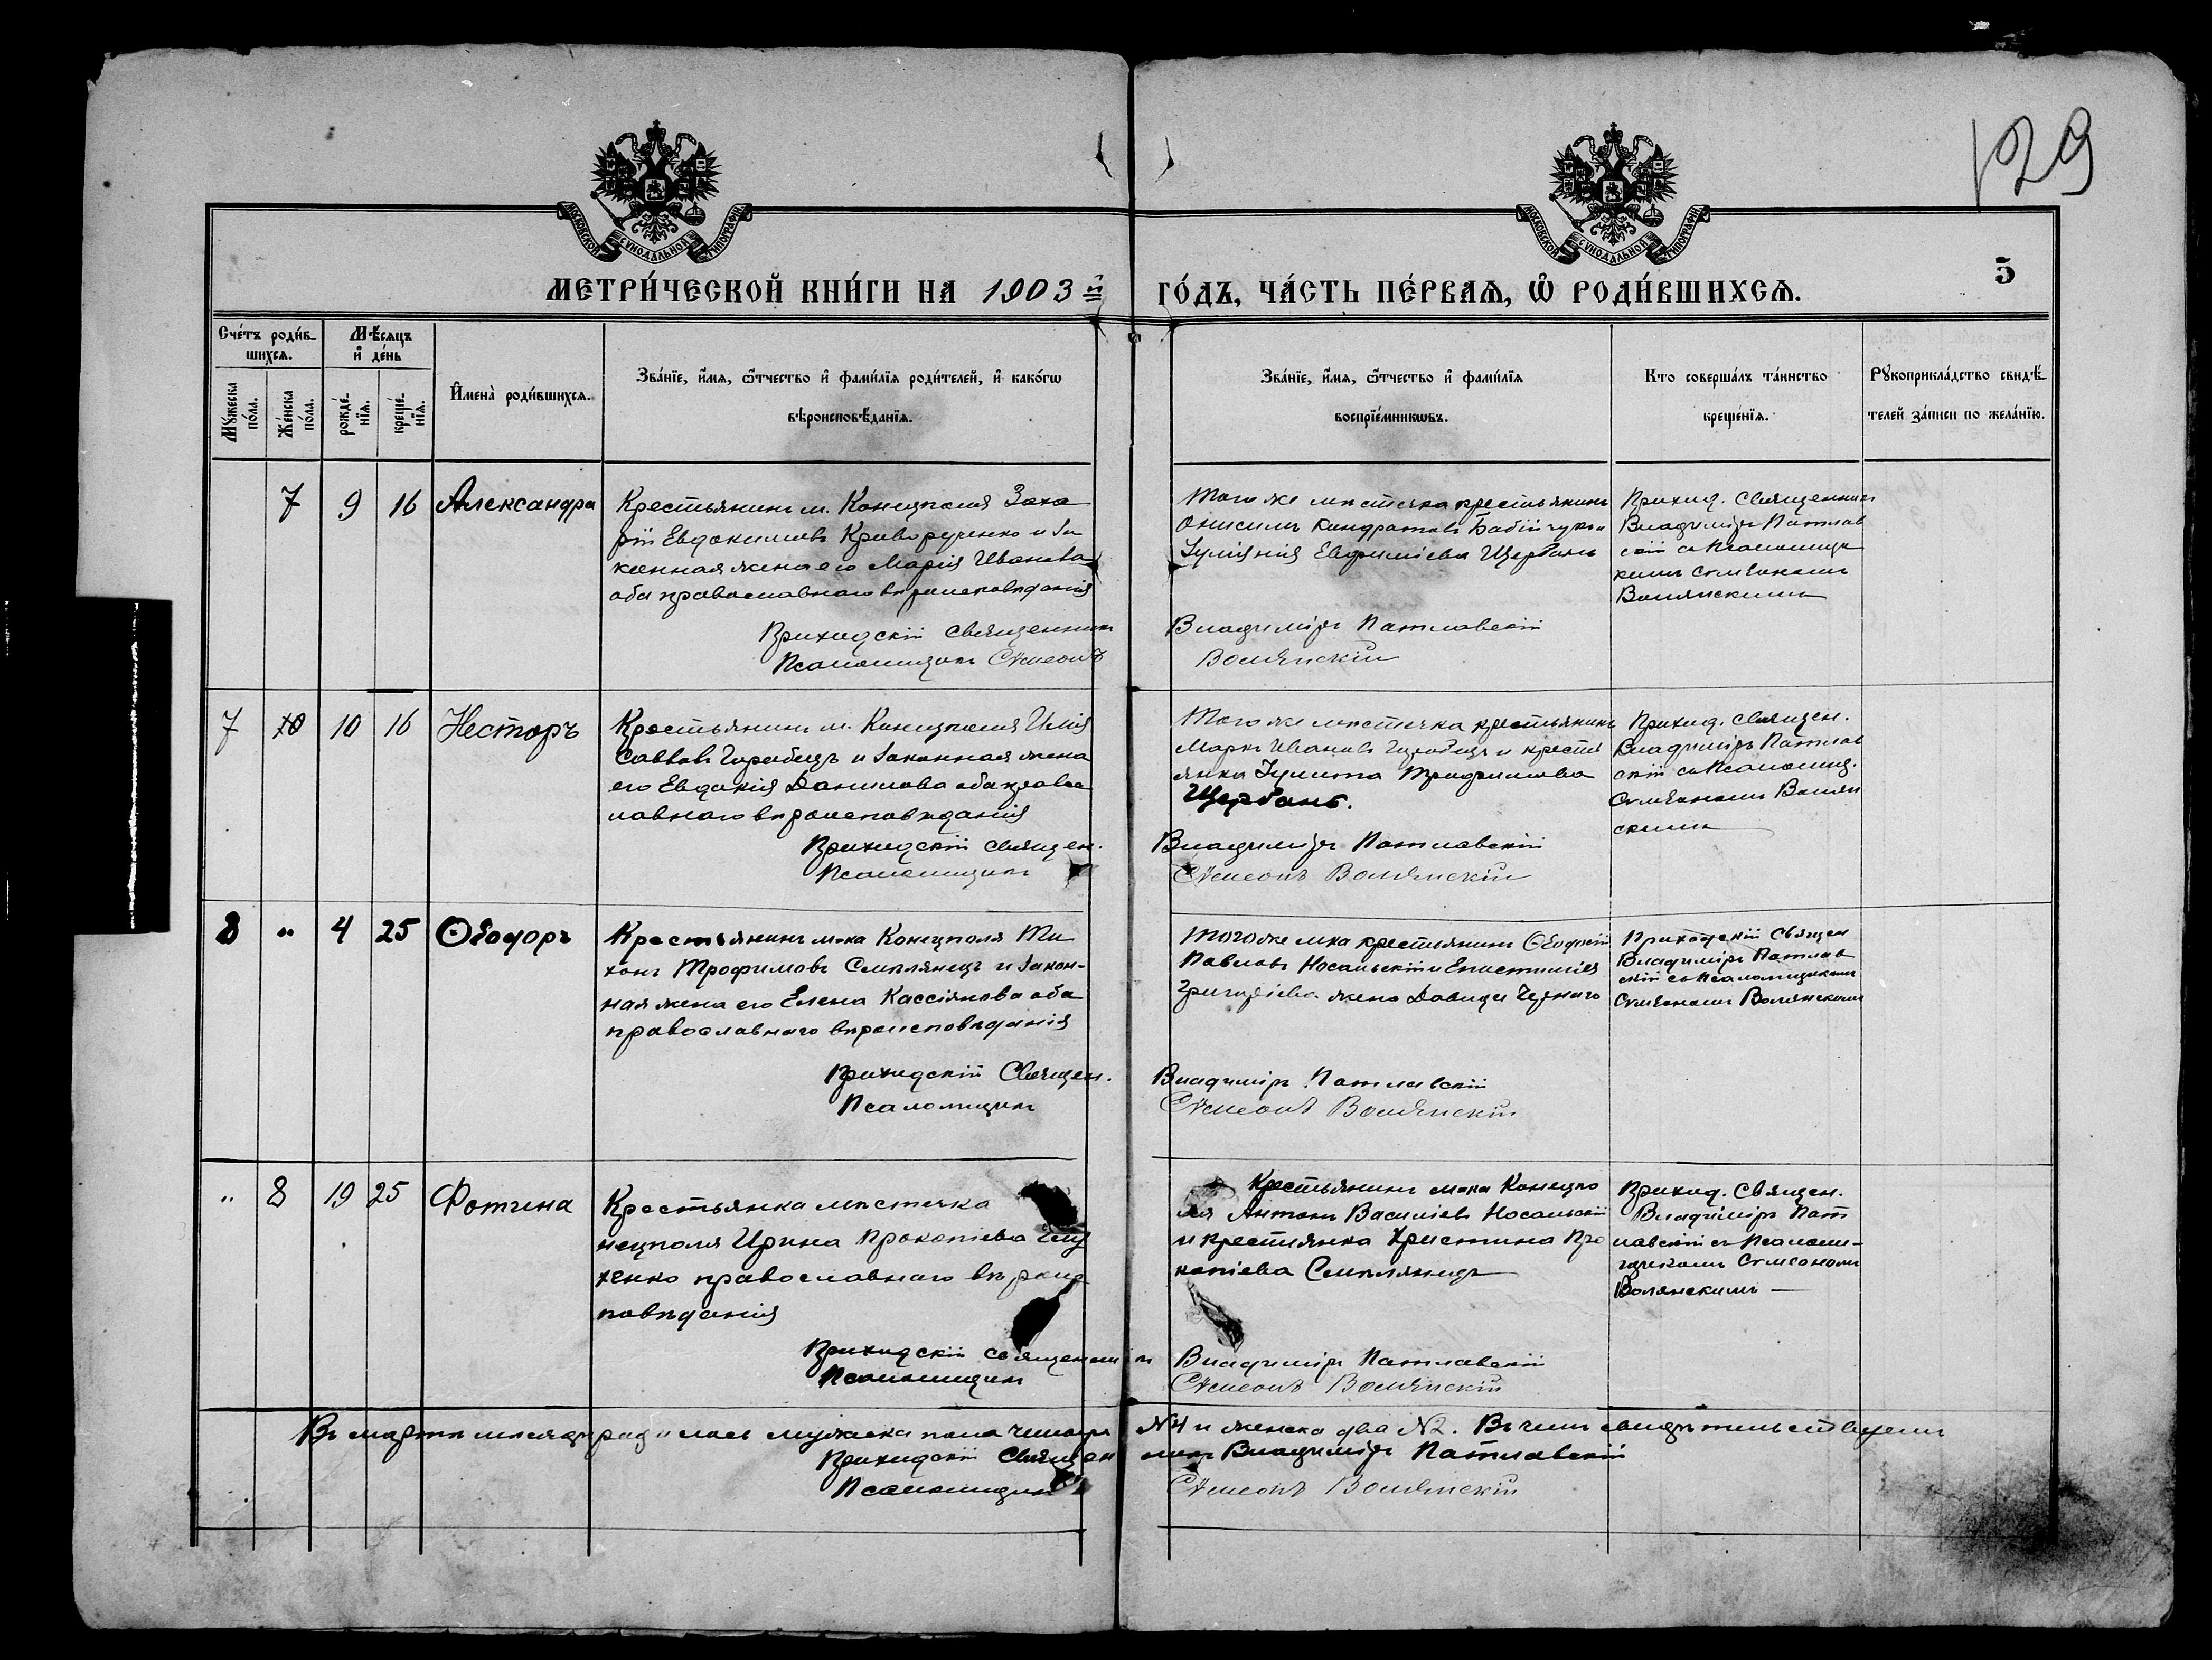 129
МОСКОВСКОЙ СѴНОДАЛЬНОЙ ТИПОГРАФІИ
МОСКОВСКОЙ СѴНОДАЛЬНОЙ ТИПОГРАФІИ
5
МЕТРИ́ЧЕСКОЙ КНИ́ГИ НА 1903 й
ГО́ДЪ, ЧА́СТЬ ПЕ́РВАѦ, Ѡ РОДИ́ВШИХСѦ.
Сче́тъ роди́в-
шихсѧ.
Мѣ́сѧцъ
и҆ де́нь
Мꙋ́жеска по́ла.
Же́нска по́ла.
рожде́нїѧ.
креще́нїѧ.
И҆мена̀ роди́вшихсѧ.
Зва́нїе, и҆́мѧ, ѻ҆́тчество и҆ фами́лїѧ роди́телей, и҆ како́гѡ
вѣроисповѣ́данїѧ.
Зва́нїе, и҆́мѧ, ѻ҆́тчество и҆ фами́лїѧ
воспрїе́мникѡвъ.
Кто соверша́лъ та́инство
креще́нїѧ.
Рꙋкоприкла́дство свидѣ́-
телей за́писи по жела́нїю.
7 9 16 Александра
Крестьянинъ м. Конецполя Заха
рій Евдокимовъ Криворученко и за
конная жена его Марія Иванова
оба православнаго вѣроисповѣданія
Приходскій Священникъ
Псаломщикъ Сѵмеонъ
Того же мѣстечка крестьянинъ
Онисимъ Кондратовъ Бабійчукъ и
Іуліянія Евфиміева Щербань
Владиміръ Патлавскій
Волянскій
Приход. Священникъ
Владиміръ Патлав
скій съ Псаломщи
комъ Сѵмеономъ
Волянскимъ
7 10 16 Несторъ
Крестьянинъ м. Конецполя Илія
Саввовъ Горобецъ и законная жена
его Евдокія Данилова оба право
славнаго вѣроисповѣданія
Приходскій Священ.
Псаломщикъ
Того же мѣстечка крестьянинъ
Маркъ Ивановъ Горобецъ и кресть
янка Іулита Трофимова
Щербань.
Владиміръ Патлавскій
Сѵмеонъ Волянскій
Приход. Священ.
Владиміръ Патлав
скій съ Псаломщ.
Сѵмеономъ Волян
скимъ
8 " 4 25 Ѳеодоръ
Крестьянинъ м-ка Конецполя Ти
хонъ Трофимовъ Семплянецъ и закон-
ная жена его Елена Кассіянова оба
православнаго вѣроисповѣданія
Приходскій Священ.
Псаломщикъ
Того же мка крестьянинъ Ѳеодосій
Павловъ Носальскій и Епистимія
Григоріева жена Давида Чернаго
Владиміръ Патлавскій
Сѵмеонъ Волянскій
Приходскій Священ
Владиміръ Патлав
скій съ Псаломщикомъ
Сѵмеономъ Волянскимъ
" 8 19 25 Фотина
Крестьянка мѣстечка
нецполя Ирина Прокопіева
ченко православнаго вѣроис
повѣданія
Приходскій священникъ
Псаломщикъ
Крестьянинъ м-ка Конецпо
ля Антонъ Василіевъ Носальскій
и крестьянка Христина Про
копіева Семплянецъ
Владиміръ Патлавскій
Сѵмеонъ Волянскій
Приход. Священ.
Владиміръ Пат
лавскій съ Псалом-
щикомъ Сѵмеономъ
Волянскимъ
Въ мартѣ мѣсяцѣ родилось мужеска пола четыре №4 и женска два №2. Въ чемъ свидѣтельствуемъ
Приходскій Священникъ Владиміръ Патлавскій
Псаломщикъ Сѵмеонъ Волянскій